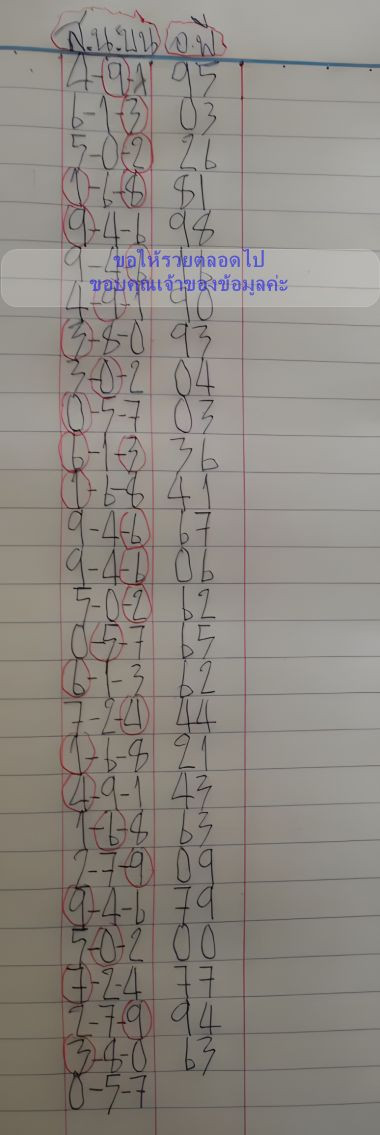 ส.น.บน อ.พ
4-9-1 95
6-1-3 03
5-0-2 26
1-6-8 81
9-4-6 98
9-4-6
ขอให้รวยตลอดไป
ขอบคุณเจ้าของข้อมูลค่ะ
4-9-1 90
3-8-0 93
3-0-2 04
0-5-7 03
6-1-3 36
1-6-8 41
9-4-6 67
9-4-6 06
5-0-2 62
0-5-7 65
6-1-3 62
7-2-4 44
1-6-8 21
4-9-1 43
1-6-8 63
2-7-9 09
9-4-6 79
5-0-2 00
7-2-4 77
2-7-9 94
3-8-0 63
0-5-7